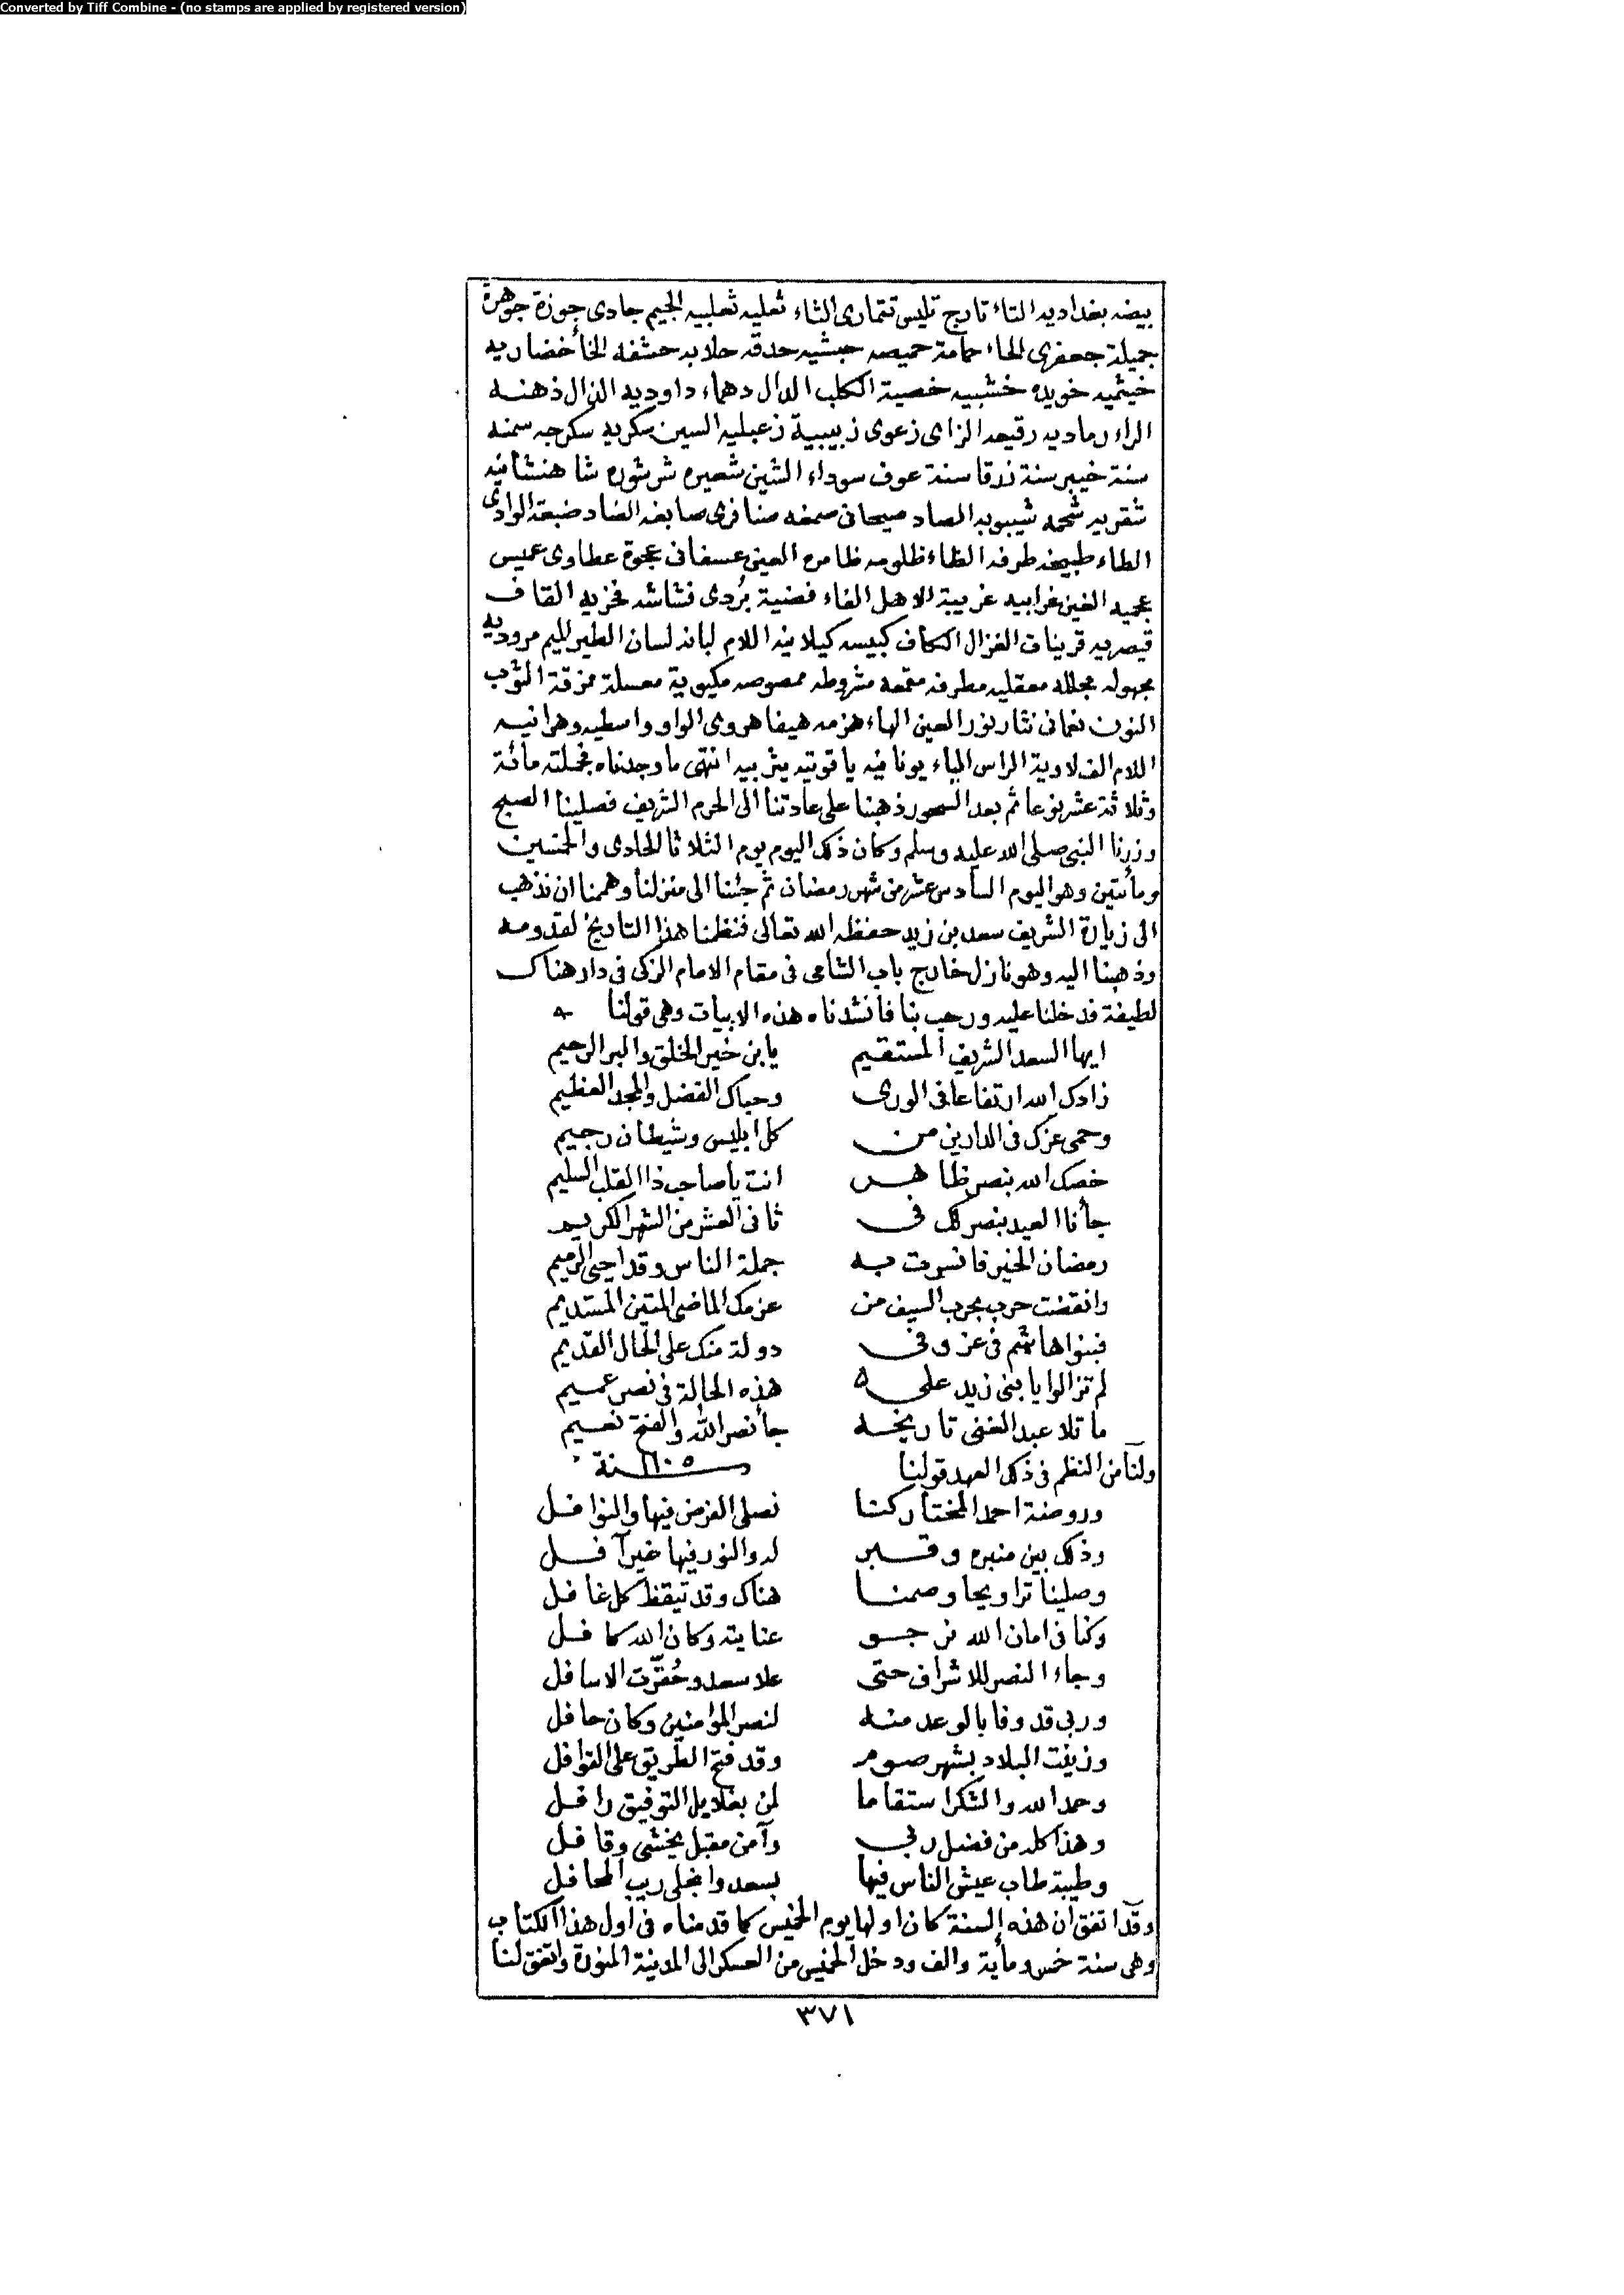 Converted by Tiff Combine - (no stamps are applied by registered version)
بيضه بغداديه التاء تارج تليس تتمارى الثاء ثعليه ثعلبيه الجيم جادى جوزة جوهرة
جميلة جعفرى الحاء حمامة حميصه حبشيه حدقه حلابه حشفه الخأ خضاريه
خيثميه خويده خشبيه خصية الكلب الدال دهماء داوديه الذال ذهنه
الراء رماديه رقيعه الزاى زعوى زبيبية زعبليه السين سكريه سكرجه سمنه
سنة خيبر سنة زرقا سنة عوف سوداء الشين شعيره شرشوره شاهنشانيه
شقريه شحمه شيبوبه الصاد صيحانى صمغه صنافرى صابغه الضاد ضبعة الوادى
الطاء طبيعه طرفه الظاء ظلومه ظامره العين عسفانى عجوة عطاوى عميس
عجيه الغين غرابيه غريبة الاهل الفاء فضية بُردى فشاشه فخزيه القاف
قيصريه قرينات الغزال الكاف كبيسه كيلانيه اللام لبانه لسان الطير الميم مروديه
مجهوله مجلله معقليه مطرفه مقمعه مشروطه ممصوصه مكبوبة معسلة ممزقة الثوب
النون نعمانى نثار نور العين الهاء هزمه هيفا هروى الواو واسطيه وهرانيه
اللام الف لاوية الراس الياء يونانيه ياقوتيه يثربيه انتهى ما وجدناه فجملته مائة
وثلاثة عشر نوعا ثم بعد السحور ذهبنا على عادتنا الى الحرم الشريف فصلينا الصبح
وزرنا النبى صلى الله عليه وسلم وكان ذلك اليوم يوم الثلاثا الحادى والخمسين
ومأتين وهو اليوم السادس عشر من شهر رمضان ثم جئنا الى منزلنا وهممنا ان نذهب
الى زيارة الشريف سعد بن زيد حفظه الله تعالى فنظمنا هذا التاريخ لقدومه
وذهبنا اليه وهو نازل خارج باب الشامى فى مقام الامام الزكى فى دار هناك
لطيفة فدخلنا عليه ورحب بنا فانشدناه هذه الابيات وهى قولنا
ايها السعد الشريف المستقيم يا بن خير الخلق والبر الرحيم
زادك الله ارتفاعا فى الورى وحباك الفضل والمجد العظيم
وحمى عزك فى الدارين من كل ابليس وشيطان رجيم
خصك الله بنصر ظاهر انت يا صاحب ذا القلب السليم
جأنا العيد بنصر لك فى ثانى العشر من الشهر الكريم
رمضان الخير فانسرت به جملة الناس وقد احيى الرميم
وانقضت حرب بحرب السيف من عزمك الماضى المتين المستديم
فبنوا هاشم فى عز وفى دولة منك على الحال القديم
لم تزالوا يا بنى زيد على هذه الحالة فى نصر عميم
ما تلا عبد الغنى تاريخه جأ نصر الله والفتح نعيم
ولنا من النظم فى ذلك العهد قولنا سنة ١١٠٥
وروضة احمد المختار كنا نصلى الفرض فيها والنوافل
وذلك بين منبره وقبر له والنور فيها غير آفل
وصلينا تراويحا وصمنا هناك وقد تيقظ كل غافل
وكنا فى امان الله نرجو عنايته وكان الله كافل
وجاء النصر للاشراف حتى علا سعد وحُقّرت الاسافل
وربى قد وفا بالوعد منه لنصر المؤمنين وكان حافل
وزينت البلاد بشهر صوم وقد فتح الطريق على القوافل
وحمد الله والشكر استقاما لمن بغلايل التوفيق رافل
وهذا كله من فضل ربى وآمن مقبل يخشى وقافل
وطيبة طاب عيش الناس فيها بسعد وانجلى ريب المحافل
وقد اتفق ان هذه السنة كان اولها يوم الخميس كما قدمناه فى اول هذا الكتاب
وهى سنة خمس ومأية والف ودخل الخميس من العسكر الى المدينة المنورة واتفق لنا
٣٧١